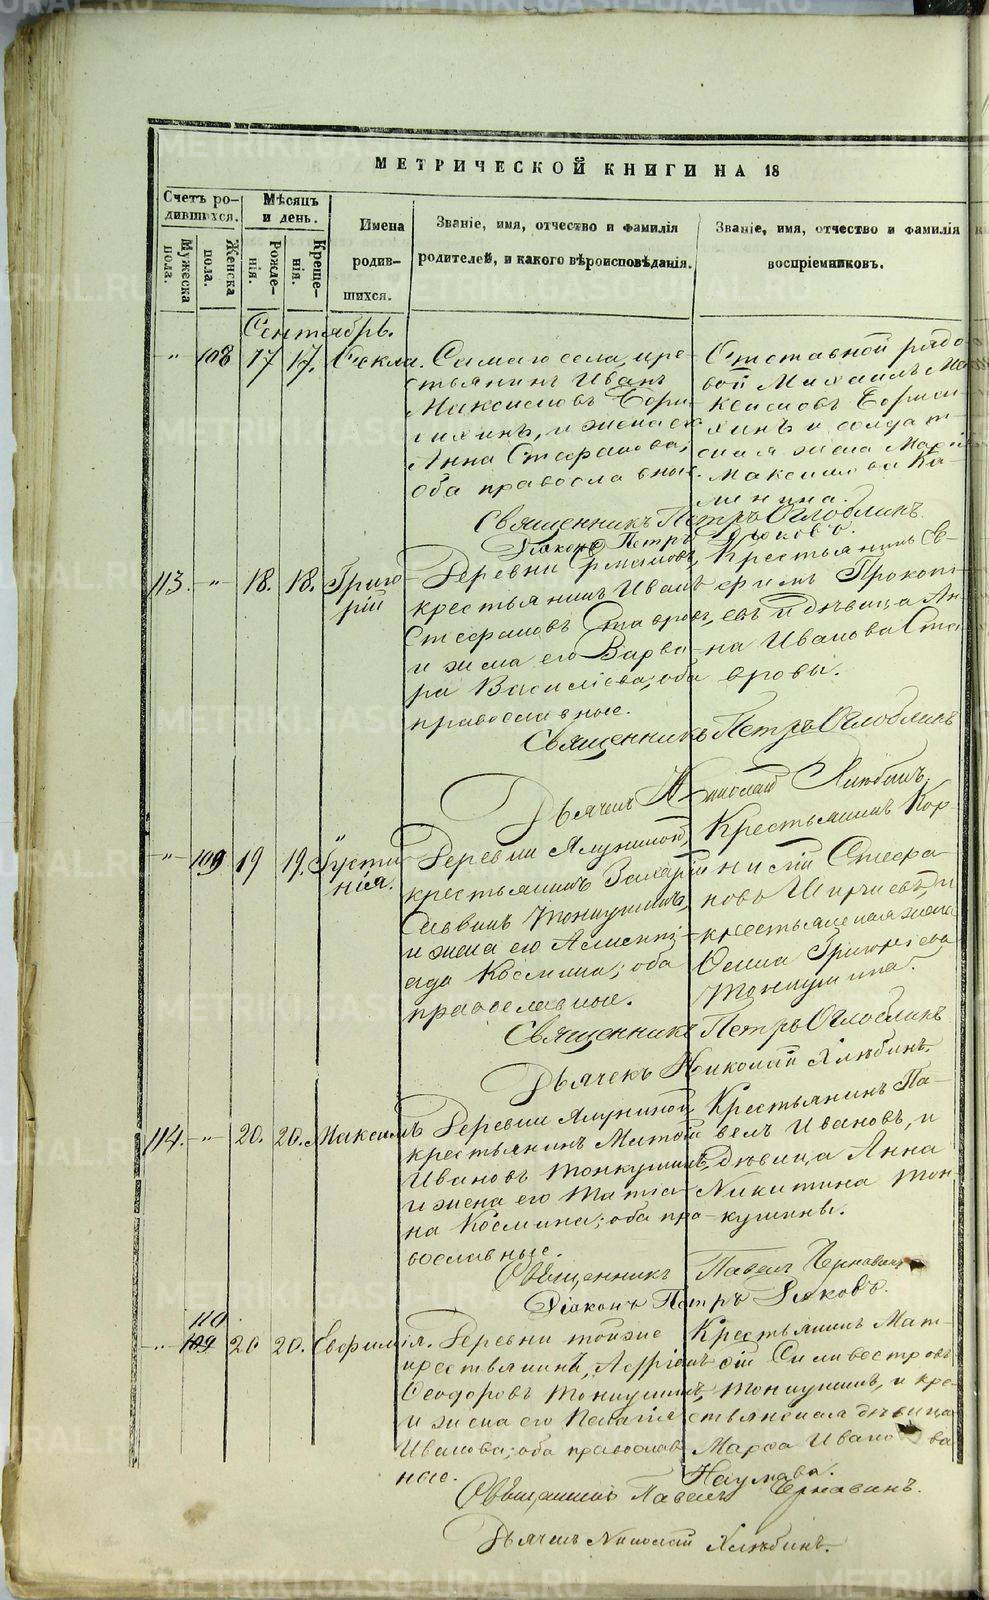 МЕТРИЧЕСКОЙ КНИГИ НА 18
Счетъ ро-
дившихся.
Мѣсяцъ
и день.
Имена
родив-
шихся.
Званіе, имя, отчество и фамилія
родителей, и какого вѣроисповѣданія.
Званіе, имя, отчество и фамилія
воспріемниковъ.
Мужеска
пола.
Женска
пола.
Рожде-
нія.
Креще-
нія.
Сентябрь.
" 108 17 17. Ѳекла.
Самаго села, кре-
стьянинъ Иванъ
Максимовъ
и жена его
Анна Стефанова,
оба православные.
Отставной рядо-
вой Михаилъ Ма-
ксимовъ
и солдат-
ская жена Марія
Максимова Ка-
менина.
Священникъ Петръ Оглоблинъ
Діаконъ Петръ Дьяковъ.
113. " 18. 18. Григо-
рій
Деревни
крестьянинъ Иванъ
Стефановъ Ставровъ,
и жена его Варва-
ра Василіева; оба
православные.
Крестьянинъ Е-
фимъ Прокопь-
евъ и дѣвица Ан-
на Иванова Ста-
вровы.
Священникъ Петръ Оглоблинъ
Дьячекъ Николай Хлѣбинъ.
" 109 19 19. Густи-
нія.
Деревни Ялуниной,
крестьянинъ Захарій
Саввинъ Тонкушинъ,
и жена его
Космина; оба
православные.
Крестьянинъ Кор-
нилій Стефа-
новъ и
крестьянская жена
Григоріева
Тонкушина.
Священникъ Петръ Оглоблинъ
Дьячекъ Николай Хлѣбинъ.
114. " 20. 20. Максимъ
Деревни Ялуниной,
крестьянинъ
Ивановъ Тонкушинъ,
и жена его Татіа-
на Космина; оба пра-
вославные.
Крестьянинъ Па-
велъ Ивановъ, и
дѣвица Анна
Никитина Тон-
кушины.
Священникъ Павелъ Чернавинъ
Діаконъ Петръ Дьяковъ.
110
" 109 20 20. Евфимія.
Деревни тойже
крестьянинъ,
Ѳеодоровъ Тонкушинъ,
и жена его Пелагія
Иванова; оба православ-
ные.
Крестьянинъ Мат-
ѳій Силивестровъ
Тонкушинъ, и кре-
стьянская дѣвица
Марѳа Иванова
Наумова.
Священникъ Павелъ Чернавинъ.
Дьячекъ Николай Хлѣбинъ.
METRIKI.GASO-URAL.RU